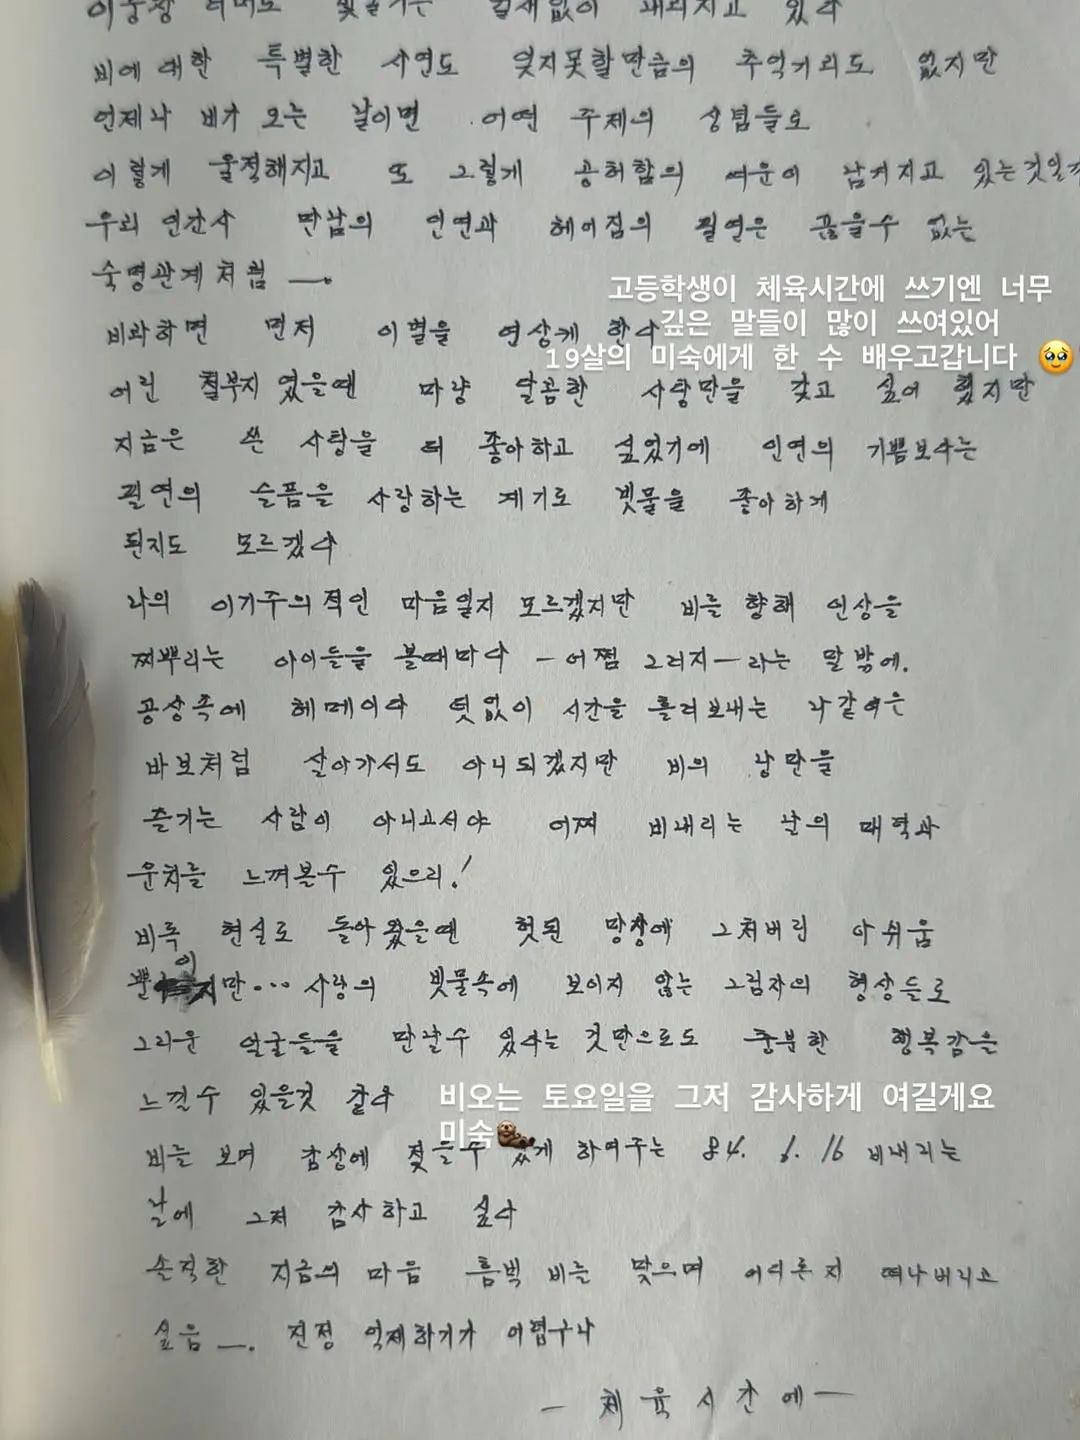 빗줄기는 쉴새없이 내리치고 있다
비에 대한 특별한 사연도 잊지못할만큼의 추억거리도 없지만
언제나 비가 오는 날이면 어떤 주제의 상념들로
이렇게 울적해지고 또 그렇게 공허함의 여운이 남겨지고 있는것일까
우리 인간사 만남의 인연과 헤어짐의 필연은 끊을수 없는
숙명관계처럼 —.
고등학생이 체육시간에 쓰기엔 너무
깊은 말들이 많이 쓰여있어
19살의 미숙에게 한 수 배우고갑니다 🥹
비와하면 먼저 이별을 연상케 한다
어린 철부지 였을땐 마냥 달콤한 사탕만을 갖고 싶어 했지만
지금은 쓴 사탕을 더 좋아하고 싶었기에 인연의 기쁨보다는
필연의 슬픔을 사랑하는 계기로 빗물을 좋아하게
된지도 모르겠다
나의 이기주의적인 마음일지 모르겠지만 비를 향해 인상을
찌뿌리는 아이들을 볼때마다 — 어쩜 그러지 — 라는 말밖에.
공상속에 헤메이다 덧없이 시간을 흘려보내는 나같은
바보처럼 살아가서도 아니되겠지만 비의 낭만을
즐기는 사람이 아니고서야 어찌 비내리는 날의 매력과
운치를 느껴볼수 있으리!
비록 현실로 돌아왔을땐 헛된 망상에 그쳐버린 아쉬움
뿐이지만... 사랑의 빗물속에 보이지 않는 그림자의 형상들로
그리운 얼굴들을 만날수 있다는 것만으로도 충분한 행복감을
느낄수 있을것 같다
비오는 토요일을 그저 감사하게 여길게요
미숙🦦
비를 보며 감상에 젖을수 있게 하여주는 84. 6. 16 비내리는
날에 그저 감사하고 싶다
솔직한 지금의 마음 흠벅 비를 맞으며 어디론지 떠나버리고
싶음 —. 진정 억제하기가 어렵구나
— 체육시간에 —